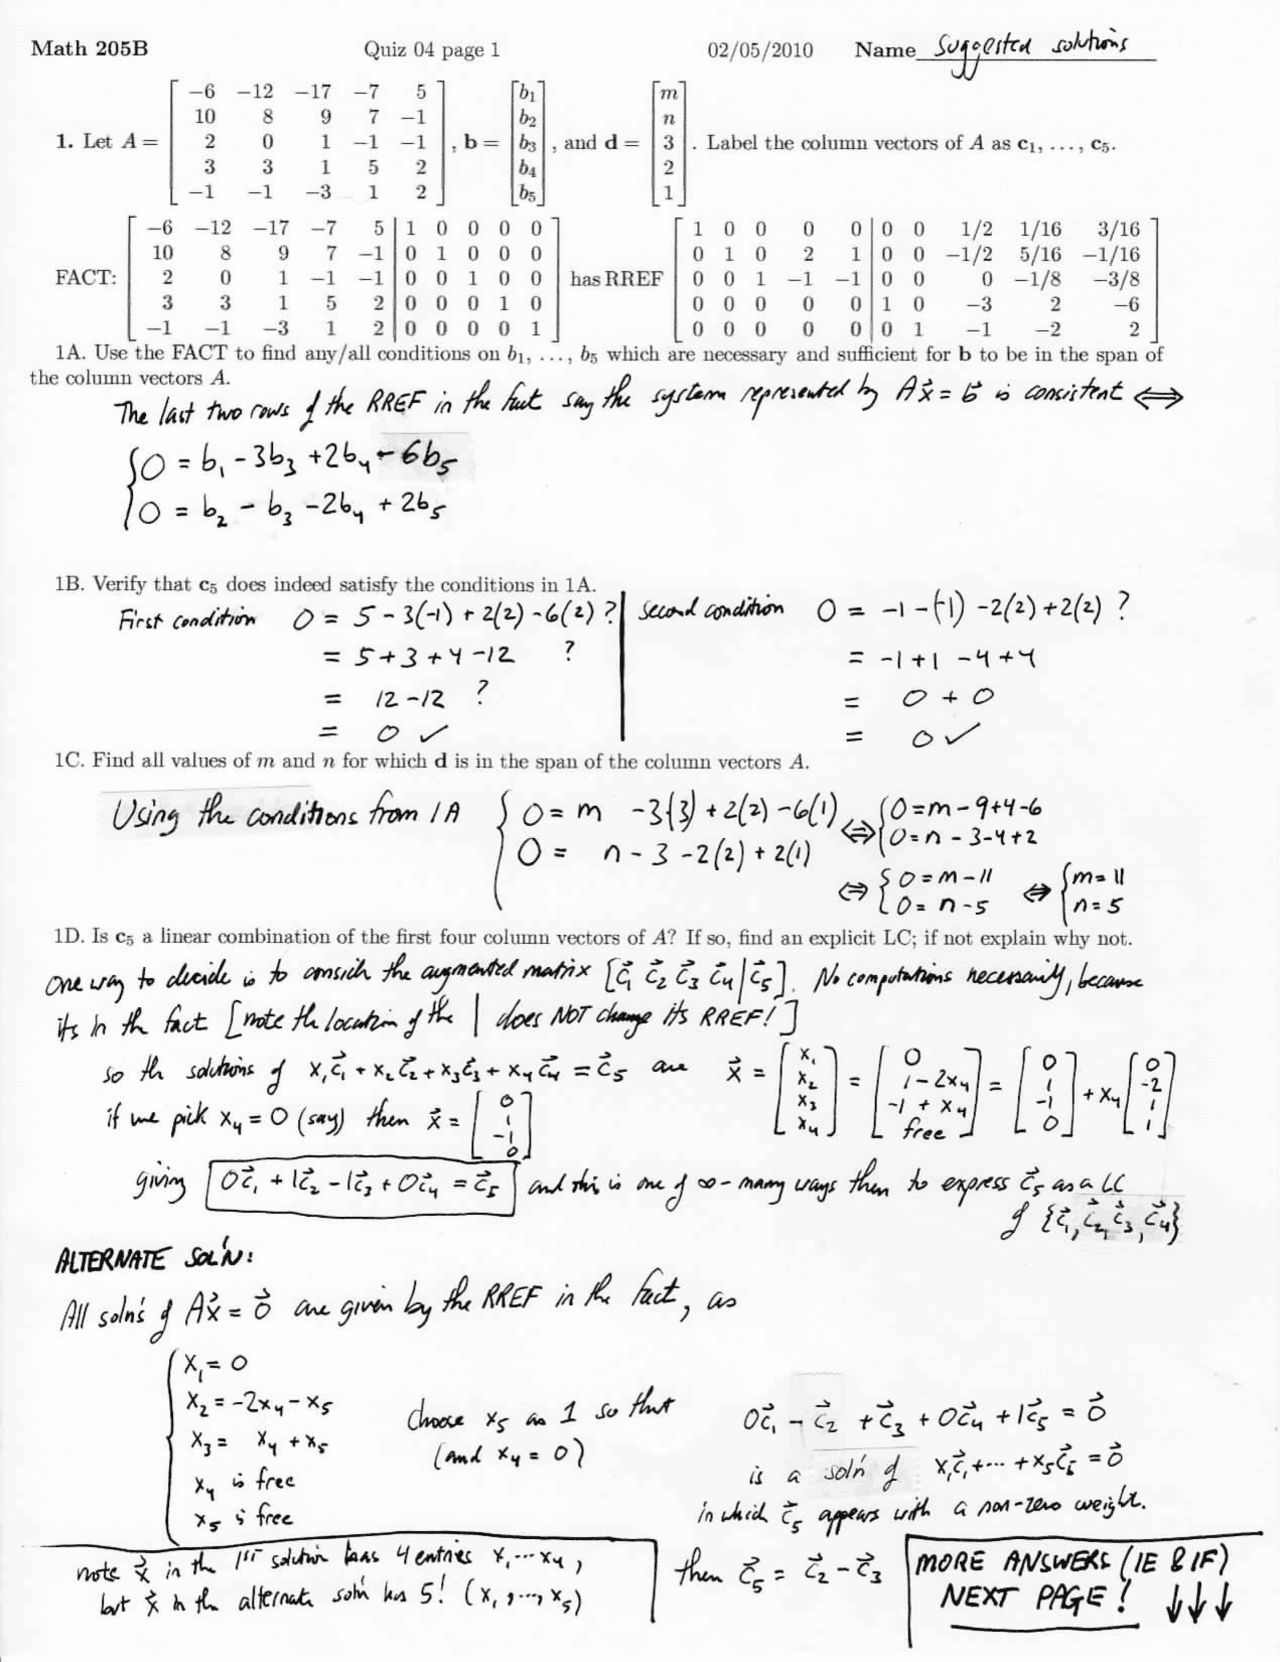 Math 205B Quiz 04 page 1 02/05/2010 Name Suggested solutions
1. Let A = [ -6 -12 -17 -7 5 ; 10 8 9 7 -1 ; 2 0 1 -1 -1 ; 3 3 1 5 2 ; -1 -1 -3 1 2 ], b = [ b₁ ; b₂ ; b₃ ; b₄ ; b₅ ], and d = [ m ; n ; 3 ; 2 ; 1 ]. Label the column vectors of A as c₁, ..., c₅.
FACT: [ -6 -12 -17 -7 5 | 1 0 0 0 0 ; 10 8 9 7 -1 | 0 1 0 0 0 ; 2 0 1 -1 -1 | 0 0 1 0 0 ; 3 3 1 5 2 | 0 0 0 1 0 ; -1 -1 -3 1 2 | 0 0 0 0 1 ] has RREF [ 1 0 0 0 0 | 0 0 1/2 1/16 3/16 ; 0 1 0 2 1 | 0 0 -1/2 5/16 -1/16 ; 0 0 1 -1 -1 | 0 0 0 -1/8 -3/8 ; 0 0 0 0 0 | 1 0 -3 2 -6 ; 0 0 0 0 0 | 0 1 -1 -2 2 ]
1A. Use the FACT to find any/all conditions on b₁, ..., b₅ which are necessary and sufficient for b to be in the span of
the column vectors A.
The last two rows of the RREF in the fact say the system represented by Ax⃗ = b⃗ is consistent ⟺
{ 0 = b₁ - 3b₃ + 2b₄ - 6b₅
0 = b₂ - b₃ - 2b₄ + 2b₅
1B. Verify that c₅ does indeed satisfy the conditions in 1A.
First condition 0 = 5 - 3(-1) + 2(2) - 6(2) ? | second condition 0 = -1 - (-1) - 2(2) + 2(2) ?
= 5 + 3 + 4 - 12 ? = -1 + 1 - 4 + 4
= 12 - 12 ? = 0 + 0
= 0 ✓ = 0 ✓
1C. Find all values of m and n for which d is in the span of the column vectors A.
Using the conditions from 1A { 0 = m - 3(3) + 2(2) - 6(1) ⟺ { 0 = m - 9 + 4 - 6
0 = n - 3 - 2(2) + 2(1) 0 = n - 3 - 4 + 2
⟺ { 0 = m - 11 ⟺ { m = 11
0 = n - 5 n = 5
1D. Is c₅ a linear combination of the first four column vectors of A? If so, find an explicit LC; if not explain why not.
One way to decide is to consider the augmented matrix [c⃗₁ c⃗₂ c⃗₃ c⃗₄ | c⃗₅]. No computations necessarily, because
its in the fact [note the location of the | does NOT change its RREF!]
so the solutions of x₁c⃗₁ + x₂c⃗₂ + x₃c⃗₃ + x₄c⃗₄ = c⃗₅ are x⃗ = [ x₁ ; x₂ ; x₃ ; x₄ ] = [ 0 ; 1 - 2x₄ ; -1 + x₄ ; free ] = [ 0 ; 1 ; -1 ; 0 ] + x₄ [ 0 ; -2 ; 1 ; 1 ]
if we pick x₄ = 0 (say) then x⃗ = [ 0 ; 1 ; -1 ; 0 ]
giving 0c⃗₁ + 1c⃗₂ - 1c⃗₃ + 0c⃗₄ = c⃗₅ and this is one of ∞-many ways then to express c⃗₅ as a LC
of {c⃗₁, c⃗₂, c⃗₃, c⃗₄}
ALTERNATE SOL'N:
All soln's of Ax⃗ = 0⃗ are given by the RREF in the fact, as
{ x₁ = 0
x₂ = -2x₄ - x₅ choose x₅ as 1 so that 0c⃗₁ - c⃗₂ + c⃗₃ + 0c⃗₄ + 1c⃗₅ = 0⃗
x₃ = x₄ + x₅ (and x₄ = 0) is a sol'n of x₁c⃗₁ + ... + x₅c⃗₅ = 0⃗
x₄ is free in which c⃗₅ appears with a non-zero weight.
x₅ is free
note x⃗ in the 1st solution has 4 entries x₁ ... x₄,
but x⃗ in the alternate sol'n has 5! (x₁, ..., x₅)
then c⃗₅ = c⃗₂ - c⃗₃
MORE ANSWERS (1E & 1F)
NEXT PAGE! ↓↓↓